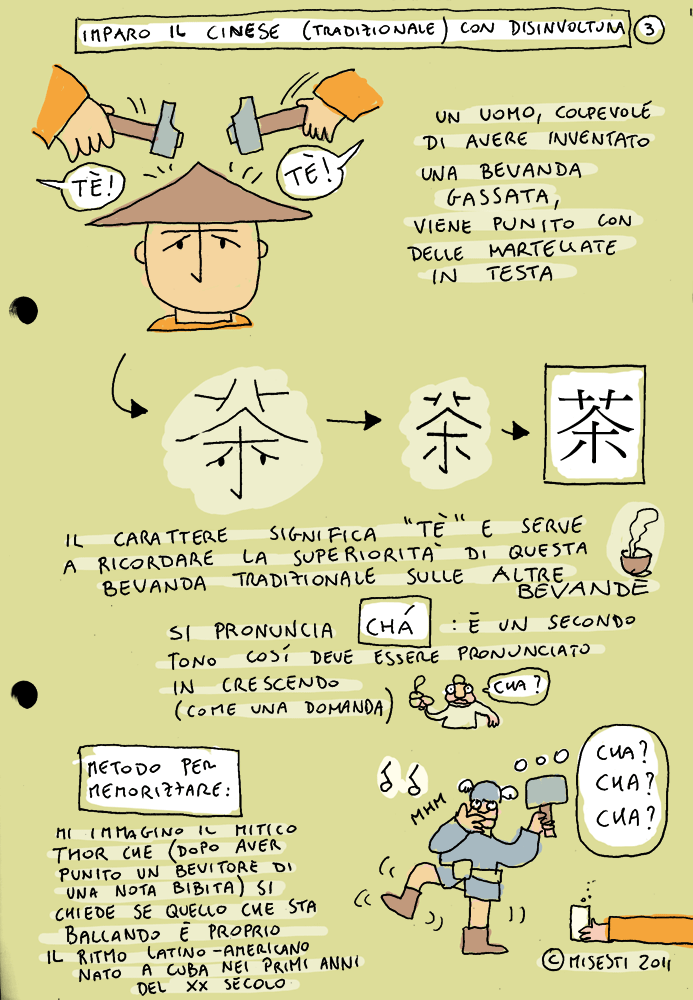 IMPARO IL CINESE (TRADIZIONALE) CON DISINVOLTURA 3
TÈ!
TÈ!
UN UOMO, COLPEVOLE
DI AVERE INVENTATO
UNA BEVANDA
GASSATA,
VIENE PUNITO CON
DELLE MARTELLATE
IN TESTA
茶
茶
茶
IL CARATTERE SIGNIFICA "TÈ" E SERVE
A RICORDARE LA SUPERIORITÀ DI QUESTA
BEVANDA TRADIZIONALE SULLE ALTRE
BEVANDE
SI PRONUNCIA CHÁ : È UN SECONDO
TONO COSÍ DEVE ESSERE PRONUNCIATO
IN CRESCENDO
(COME UNA DOMANDA)
CHA?
METODO PER
MEMORIZZARE:
MI IMMAGINO IL MITICO
THOR CHE (DOPO AVER
PUNITO UN BEVITORE DI
UNA NOTA BIBITA) SI
CHIEDE SE QUELLO CHE STA
BALLANDO È PROPRIO
IL RITMO LATINO-AMERICANO
NATO A CUBA NEI PRIMI ANNI
DEL XX SECOLO.
MHM
CHA?
CHA?
CHA?
© MISESTI 2011